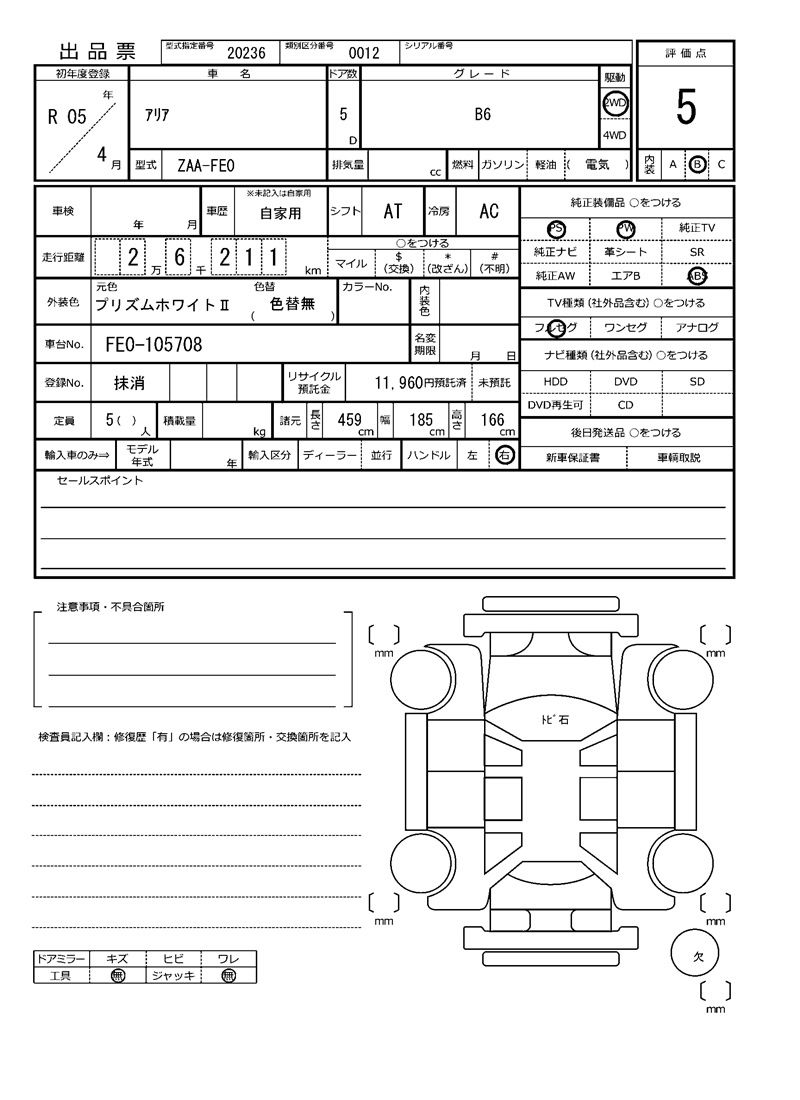 出品票 型式指定番号 20236 類別区分番号 0012 シリアル番号
評価点
5
内装 A B C
初年度登録 車名 ドア数 グレード 駆動
R 05 年 4 月 アリア 5 D B6 2WD
4WD
型式 ZAA-FE0 排気量 cc 燃料 ガソリン 軽油 ( 電気 )
車検 年 月 車歴 ※未記入は自家用 自家用 シフト AT 冷房 AC
走行距離 2 万 6 千 2 1 1 km ○をつける
マイル $(交換) *(改ざん) #(不明)
外装色 元色 プリズムホワイトⅡ 色替 ( 色替無 ) カラーNo. 内装色
車台No. FE0-105708 名変期限 月 日
登録No. 抹消 リサイクル預託金 11,960円預託済 未預託
定員 5 ( ) 人 積載量 kg 諸元 長さ 459 cm 幅 185 cm 高さ 166 cm
輸入車のみ⇒ モデル年式 年 輸入区分 ディーラー 並行 ハンドル 左 右
純正装備品 ○をつける
PS PW 純正TV
純正ナビ 革シート SR
純正AW エアB ABS
TV種類(社外品含む)○をつける
フルセグ ワンセグ アナログ
ナビ種類(社外品含む)○をつける
HDD DVD SD
DVD再生可 CD
後日発送品 ○をつける
新車保証書 車輌取説
セールスポイント
注意事項・不具合箇所
検査員記入欄:修復歴「有」の場合は修復箇所・交換箇所を記入
ドアミラー キズ ヒビ ワレ
工具 無 ジャッキ 無
mm mm
トビ石
mm mm
欠
mm